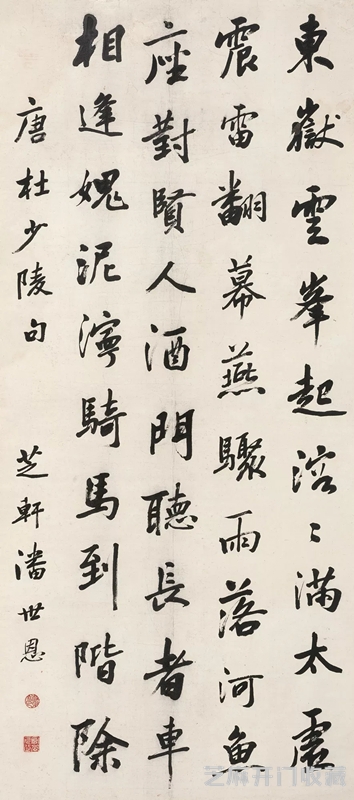 東嶽雲峯起溶〻滿太虛
震雷翻幕燕驟雨落河魚
座對賢人酒門聽長者車
相逢愧泥濘騎馬到階除
唐杜少陵句 芝軒潘世恩
芝麻开门收藏